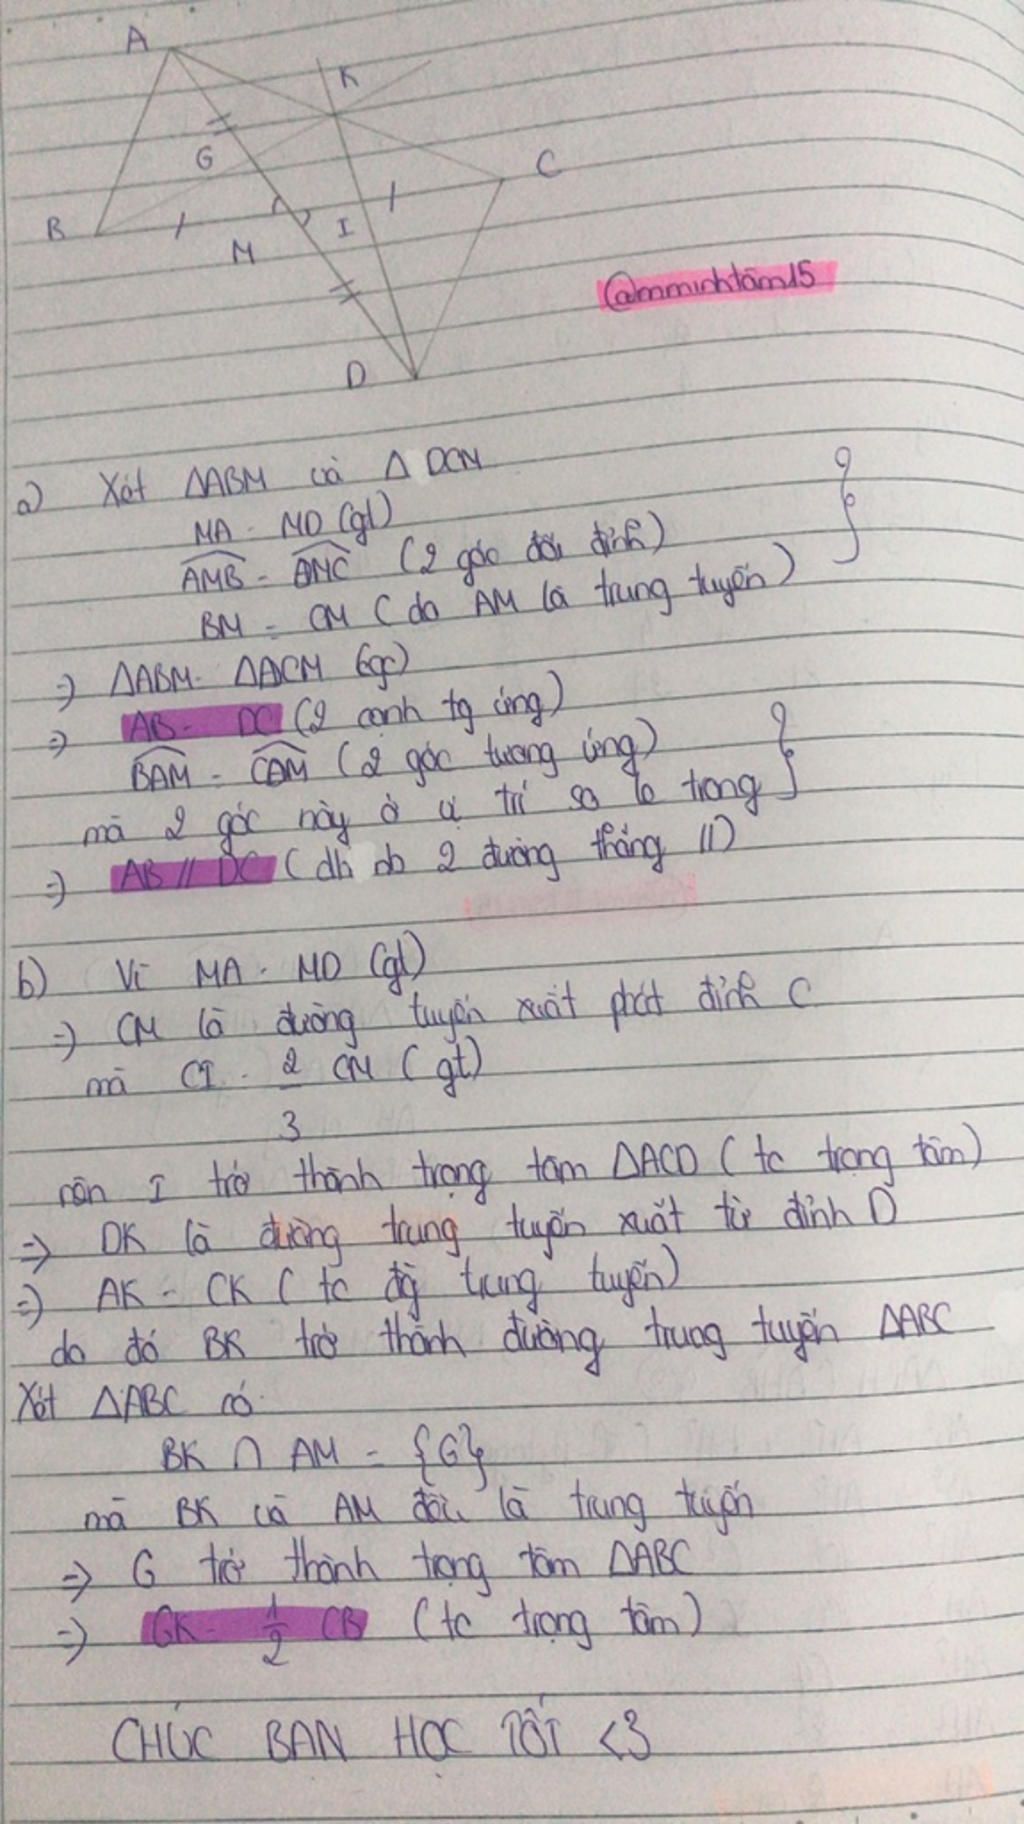 A
K
G
C
B
I
M
@mminhtâm15
D
a) Xét ΔABM và Δ DCM
MA = MD (gt)
AMB = DMC (2 góc đối đỉnh)
BM = CM (do AM là trung tuyến)
=) ΔABM = ΔDCM (cgc)
=) AB = DC (2 cạnh tg ứng)
BAM = CDM (2 góc tương ứng)
mà 2 góc này ở vị trí so le trong
=) AB // DC (dh nb 2 đường thẳng //)
b) Vì MA = MD (gt)
=) CM là đường tuyến xuất phát đỉnh C
mà CI = 2 CM (gt)
3
nên I trở thành trọng tâm ΔACD (tc trọng tâm)
=> DK là đường trung tuyến xuất từ đỉnh D
=) AK = CK (tc đg trung tuyến)
do đó BK trở thành đường trung tuyến ΔABC
Xét ΔABC có
BK ∩ AM = {G}
mà BK và AM đều là trung tuyến
=> G trở thành trọng tâm ΔABC
=) GK = 1/2 GB (tc trọng tâm)
CHÚC BẠN HỌC TỐT <3